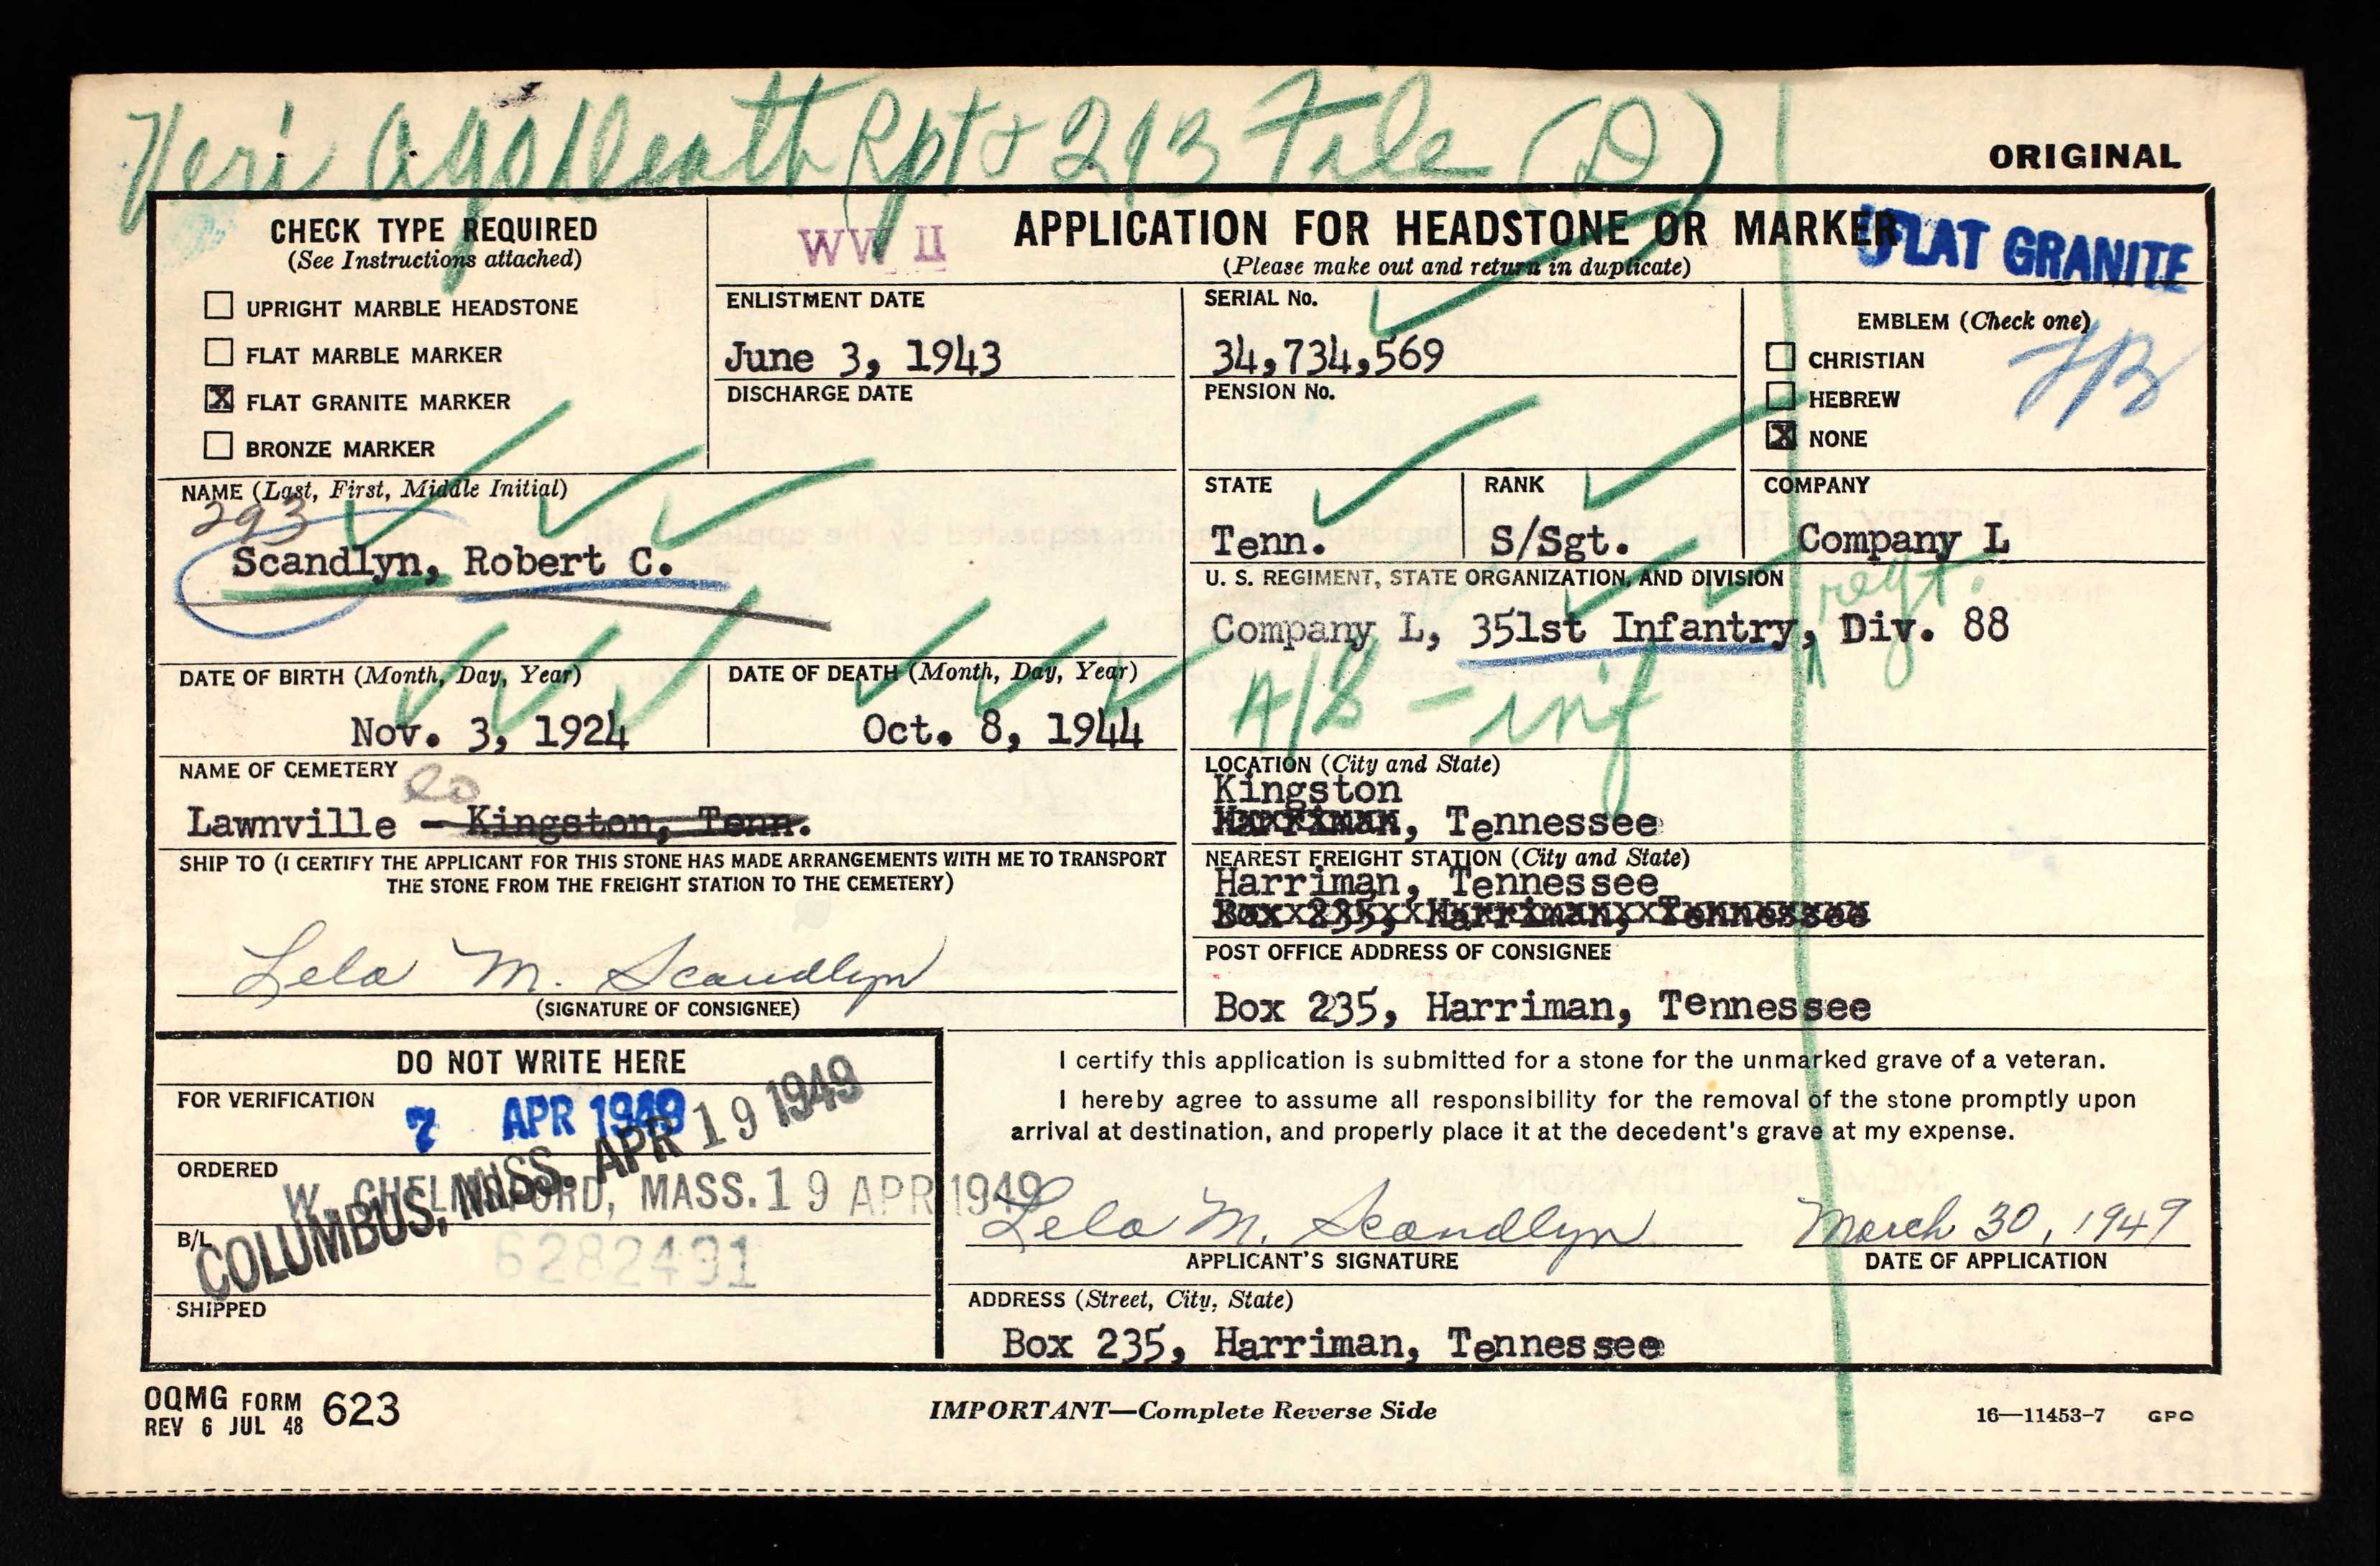 Veri Ago Death Rpt & 293 File (D)
ORIGINAL
CHECK TYPE REQUIRED
(See Instructions attached)
UPRIGHT MARBLE HEADSTONE
FLAT MARBLE MARKER
X FLAT GRANITE MARKER
BRONZE MARKER
WW II
APPLICATION FOR HEADSTONE OR MARKER
(Please make out and return in duplicate)
FLAT GRANITE
ENLISTMENT DATE
June 3, 1943
DISCHARGE DATE
SERIAL No.
34,734,569
PENSION No.
EMBLEM (Check one)
CHRISTIAN
HEBREW
X NONE
NAME (Last, First, Middle Initial)
293
Scandlyn, Robert C.
STATE
Tenn.
RANK
S/Sgt.
COMPANY
Company L
U. S. REGIMENT, STATE ORGANIZATION, AND DIVISION
regt.
Company L, 351st Infantry, Div. 88
A/B - inf
DATE OF BIRTH (Month, Day, Year)
Nov. 3, 1924
DATE OF DEATH (Month, Day, Year)
Oct. 8, 1944
NAME OF CEMETERY
Lawnville - Kingston, Tenn.
LOCATION (City and State)
Kingston
Harriman, Tennessee
SHIP TO (I CERTIFY THE APPLICANT FOR THIS STONE HAS MADE ARRANGEMENTS WITH ME TO TRANSPORT
THE STONE FROM THE FREIGHT STATION TO THE CEMETERY)
Lela M. Scandlyn
(SIGNATURE OF CONSIGNEE)
NEAREST FREIGHT STATION (City and State)
Harriman, Tennessee
Box 235, Harriman, Tennessee
POST OFFICE ADDRESS OF CONSIGNEE
Box 235, Harriman, Tennessee
DO NOT WRITE HERE
FOR VERIFICATION
7 APR 1949
ORDERED
W. CHELMSFORD, MASS. 19 APR 1949
COLUMBUS, MISS. APR 19 1949
B/L
6282491
SHIPPED
I certify this application is submitted for a stone for the unmarked grave of a veteran.
I hereby agree to assume all responsibility for the removal of the stone promptly upon
arrival at destination, and properly place it at the decedent's grave at my expense.
Lela M. Scandlyn March 30, 1949
APPLICANT'S SIGNATURE DATE OF APPLICATION
ADDRESS (Street, City, State)
Box 235, Harriman, Tennessee
OQMG FORM 623
REV 6 JUL 48
IMPORTANT—Complete Reverse Side
16—11453-7 GPO